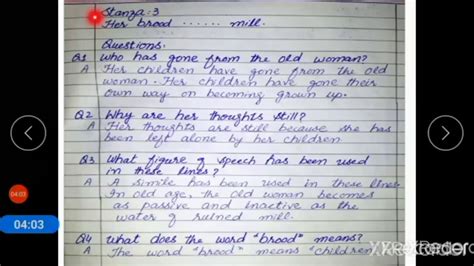 Stanza:3
Her brood ...... mill.
Questions:
Q1 who has gone from the old woman?
A Her children have gone from the old
woman. Her children have gone their
own way on becoming grown up.
Q2 Why are her thoughts still?
A Her thoughts are still because she has
been left alone by her children
Q3 What figure of speech has been used
in these lines?
A A simile has been used in these lines.
In old age, the old woman becomes
as passive and inactive as the
water of ruined mill.
Q4 What does the word "brood" means?
A The word "brood" means "children
04:03
04:03